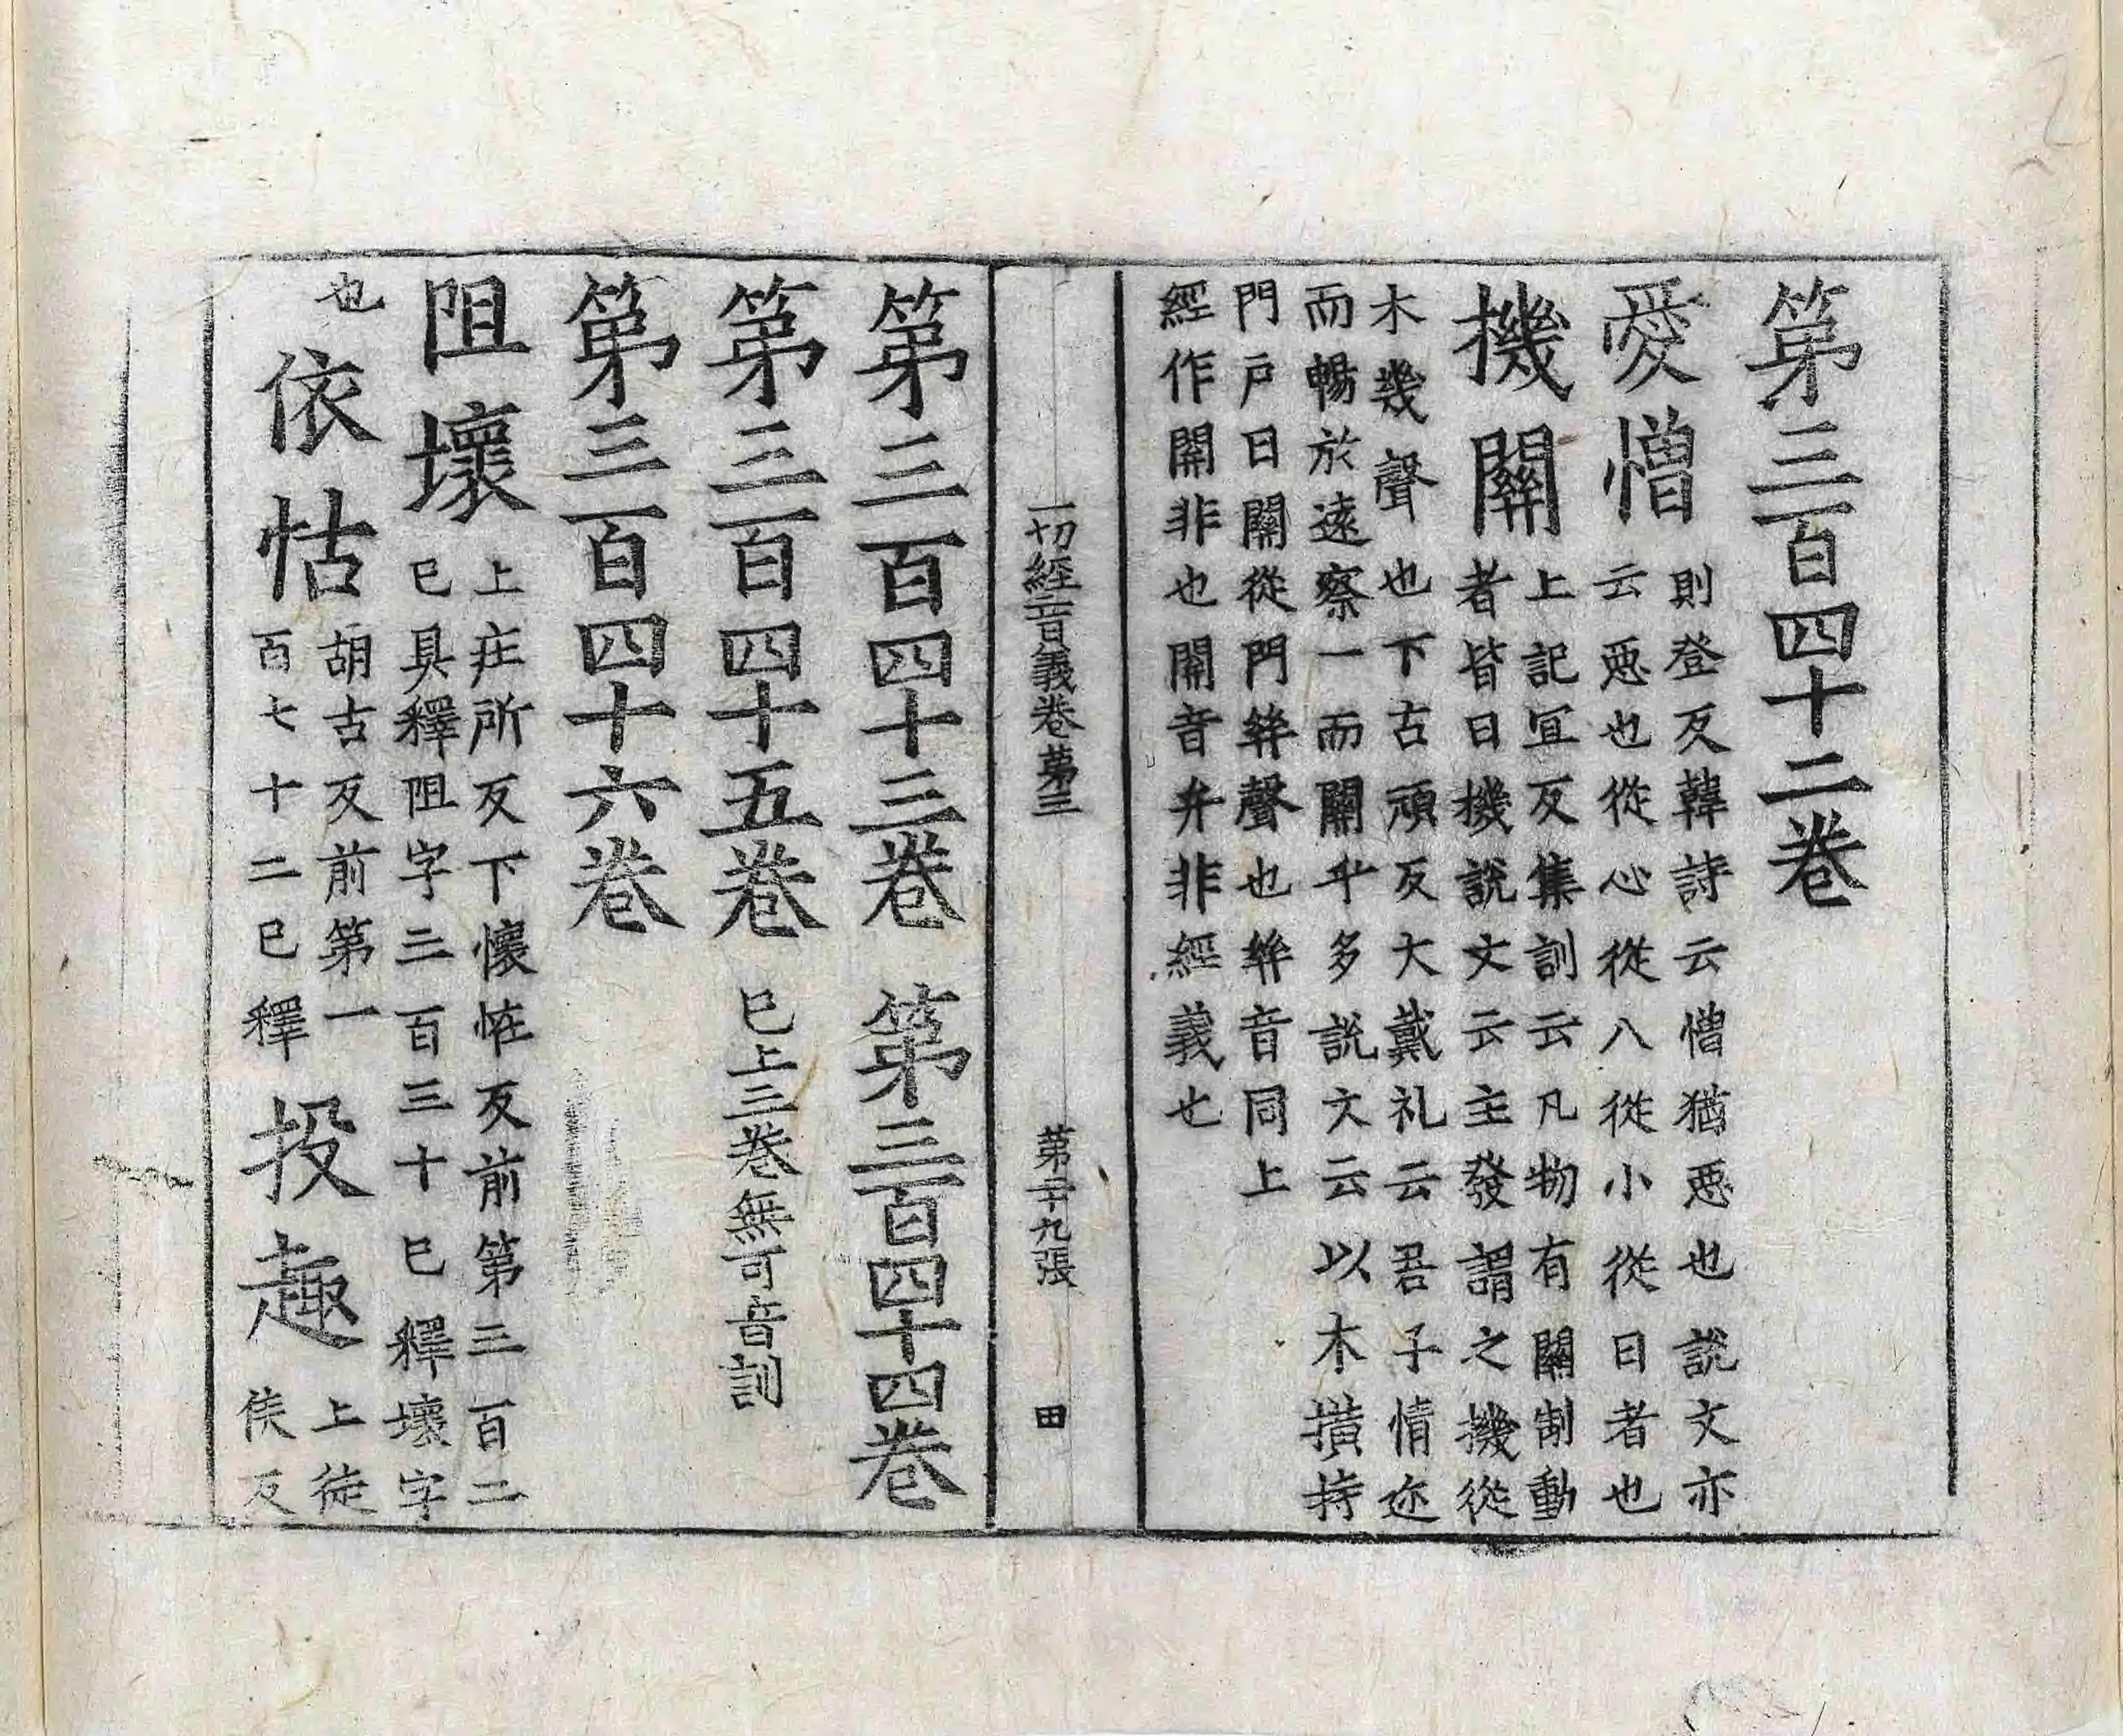 第三百四十二卷
愛憎 則登反韓詩云憎猶惡也說文亦
云惡也從心從八從小從曰者也
機關 上記冝反集訓云凡物有關制動
者皆曰機說文云主發謂之機從
木幾聲也下古頑反大戴礼云吾子情迩
而暢於遠察一而關乎多說文云以木撗持
門戶曰關從門𢇇聲也𢇇音同上
經作開非也開音弁非經義也
一切經音義卷第三 第二十九張 田
第三百四十三卷 第三百四十四卷
第三百四十五卷 已上三卷無可音訓
第三百四十六卷
阻壞 上疘所反下懷恠反前第三百二
已具釋阻字三百三十已釋壞字
也
依怙 胡古反前第一
百七十二已釋
投趣 上徒
侯反